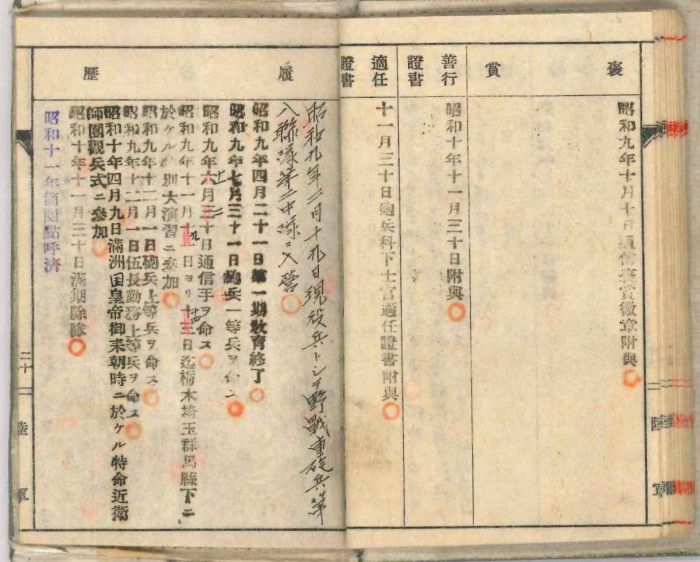 褒賞
昭和九年十月十日通信賞徽章附與
善行證書
昭和十年十一月三十日附與
適任證書
十一月三十日砲兵科下士官適任證書附與
陸軍
履歷
昭和九年二月十九日現役兵トシテ野戰重砲兵第
八聯隊第二中隊ニ入營
昭和九年四月二十一日第一期教育終了
昭和九年七月三十一日砲兵一等兵ヲ命ス
昭和九年六月三十日通信手ヲ命ス
昭和九年十一月日ヨリ十三日迄栃木埼玉群馬縣下ニ
於ケル別大演習ニ参加
昭和九年十二月一日砲兵上等兵ヲ命ス
昭和九年十二月一日伍長勤務上等兵ヲ命ス
昭和十年四月九日滿洲国皇帝御来朝時ニ於ケル特命近衛
師團觀兵式ニ参加
昭和十年十一月三十日滿期除隊
昭和十一年簡閲點呼濟
二十一
陸軍